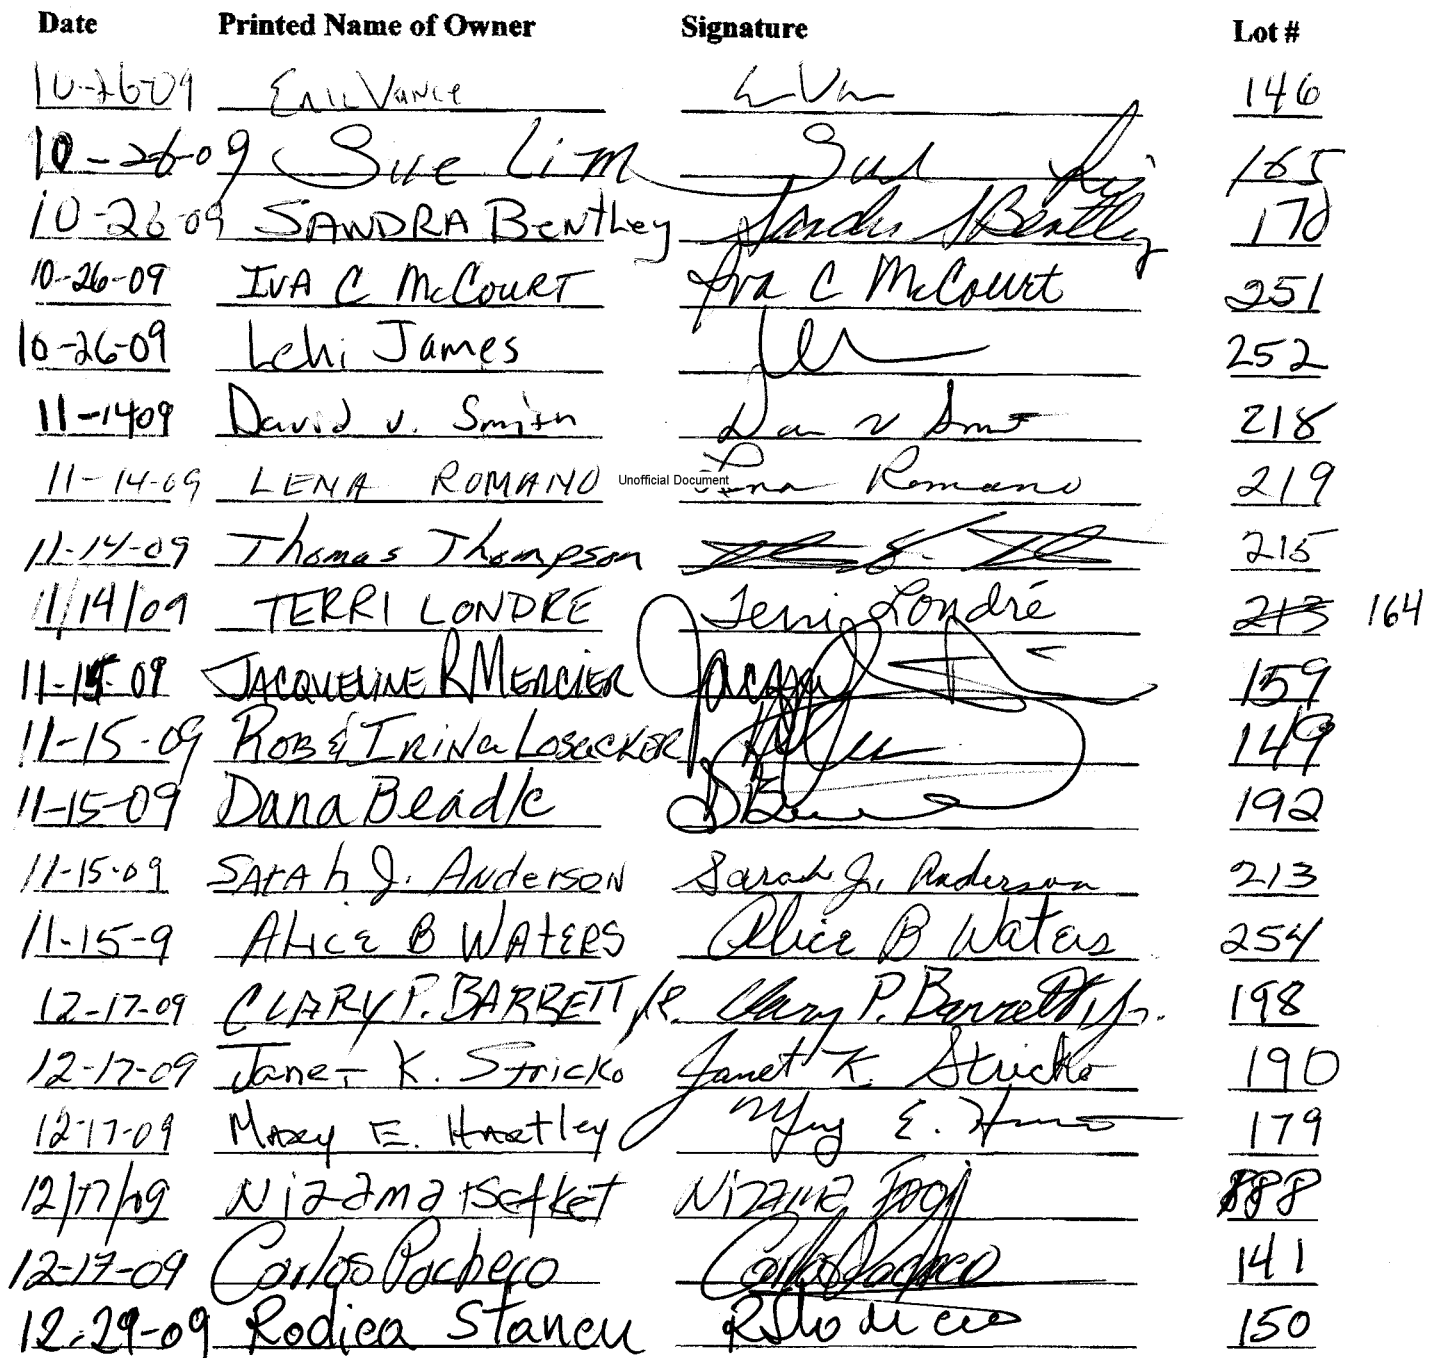 Date Printed Name of Owner Signature Lot #
10-26-09 Eric Vance 146
10-26-09 Sue Lim Sue Lim 165
10-26-09 SANDRA Bentley Sandra S Bentley 170
10-26-09 IVA C McCOURT Iva C McCourt 251
10-26-09 Lehi James 252
11-1409 David v. Smith 218
11-14-09 LENA ROMANO Unofficial Document Lena Romano 219
11-14-09 Thomas Thompson 215
11/14/09 TERRI LONDRE Terri Londré 213 164
11-15-09 JACQUELINE R MERCIER 159
11-15-09 ROB & IRINA LOSECKER 149
11-15-09 Dana Beadle 192
11-15-09 SArAh J. Anderson Sarah J. Anderson 213
11-15-9 ALICE B WAtERS Alice B Waters 254
12-17-09 CLARY P. BARRETT JR. Clary P. Barrett Jr. 198
12-17-09 Janet K. Stricko Janet K. Stricko 190
12-17-09 MARY E. HARtley 179
12/17/09 Nizama Nizama 188
12-17-09 Carlos Pacheco Carlos Pacheco 141
12-29-09 Rodica Stancu 150